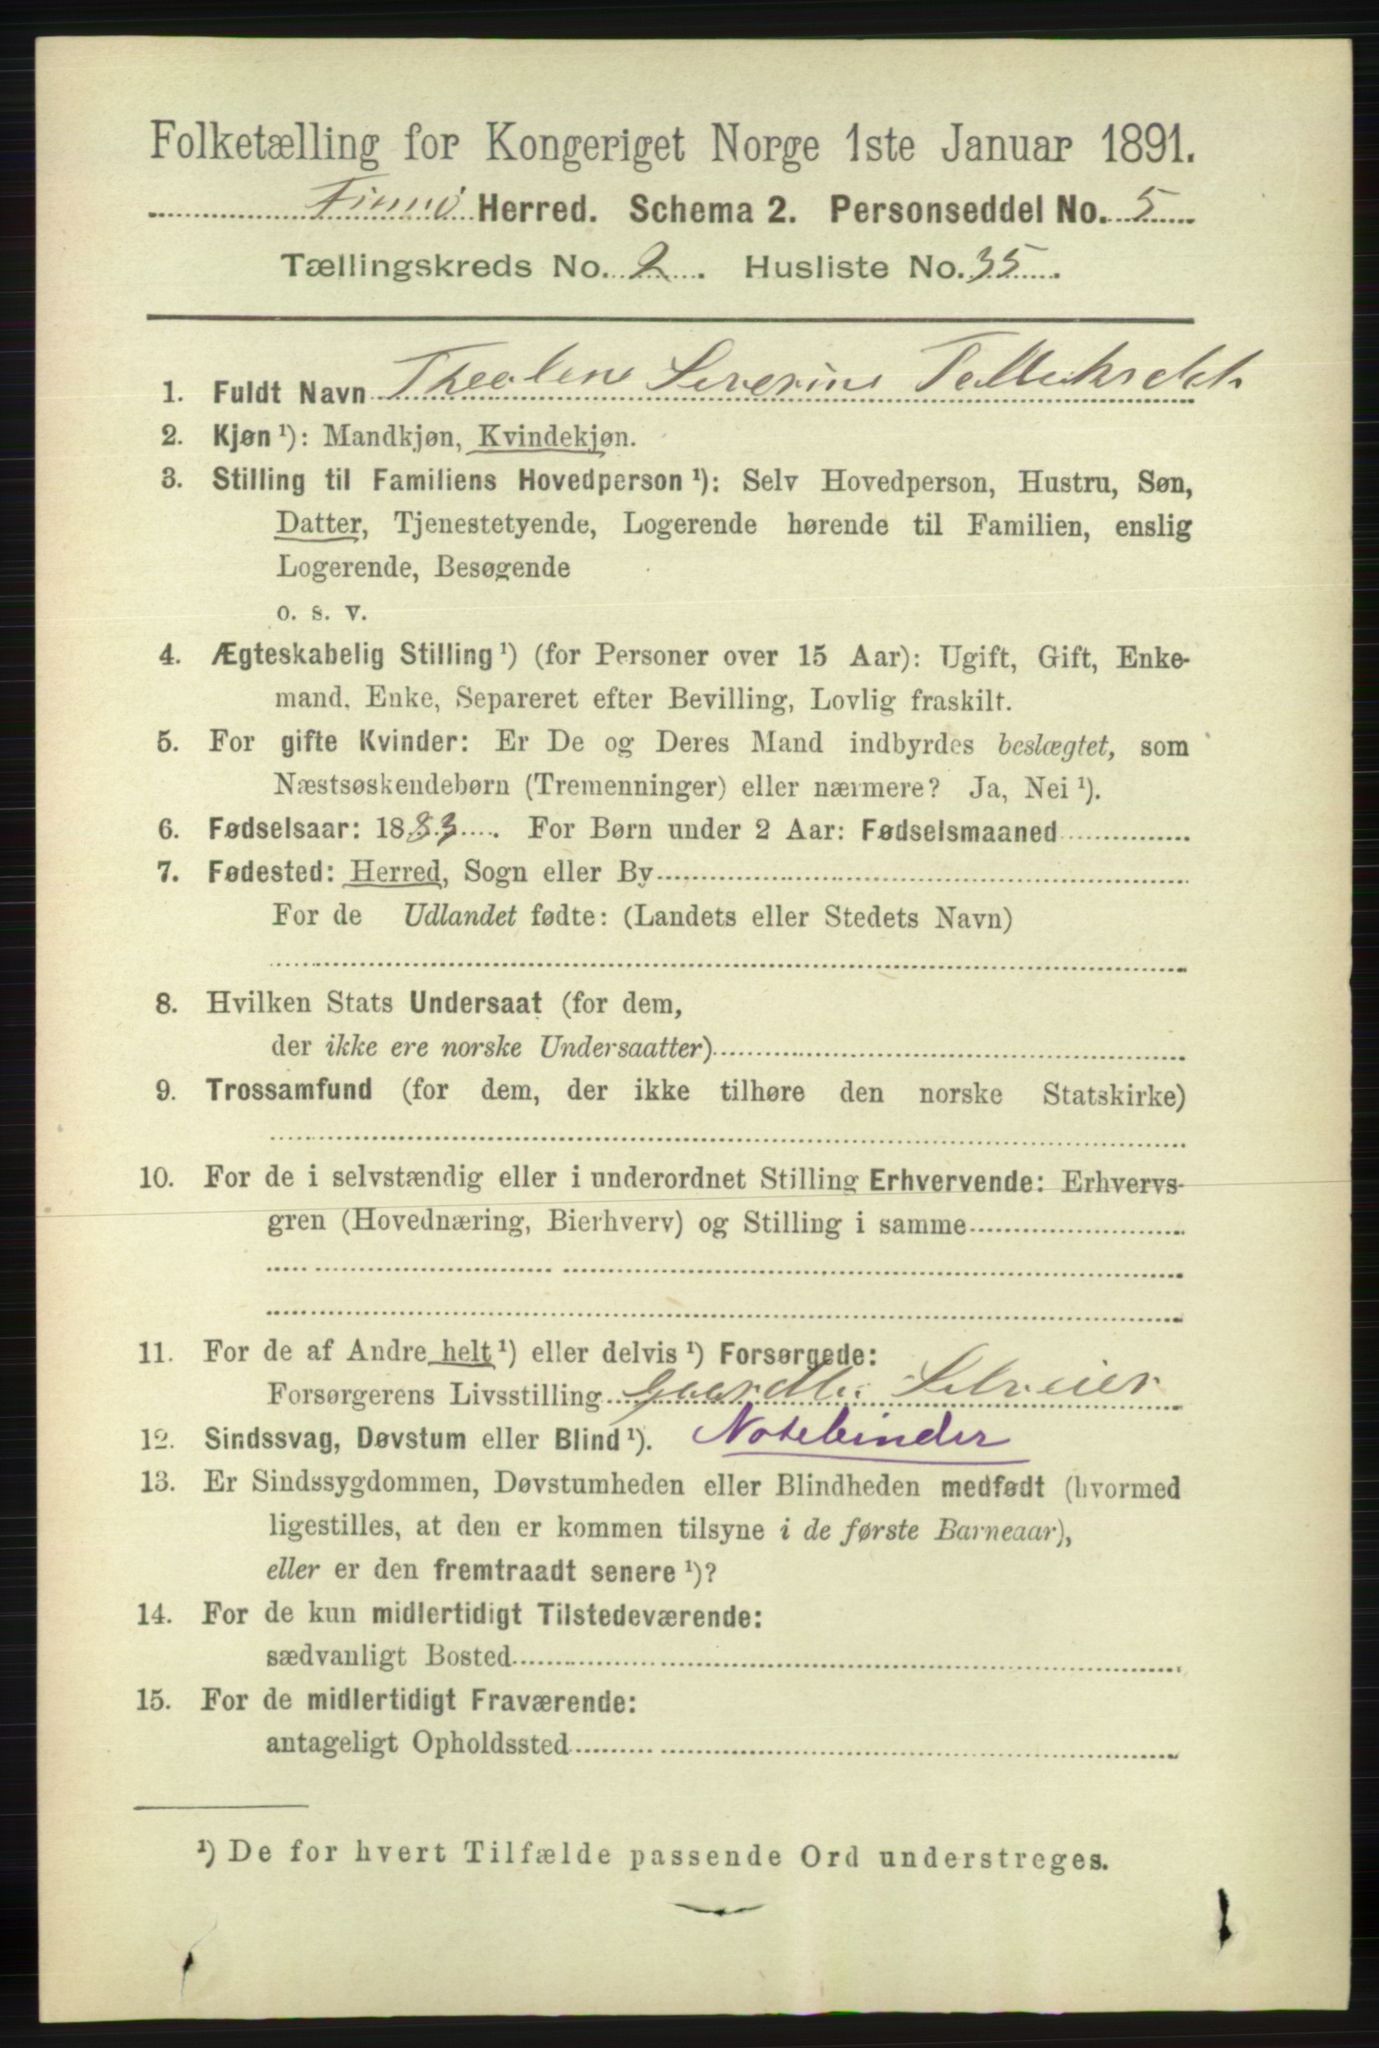 Folketælling for Kongeriget Norge 1ste Januar 1891.
Finnø Herred. Schema 2. Personseddel No. 5
Tællingskreds No. 2. Husliste No. 35.
1. Fuldt Navn Thealene Severine
2. Kjøn ¹): Mandkjøn, Kvindekjøn.
3. Stilling til Familiens Hovedperson ¹): Selv Hovedperson, Hustru, Søn,
Datter, Tjenestetyende, Logerende hørende til Familien, enslig
Logerende, Besøgende
o. s. v.
4. Ægteskabelig Stilling ¹) (for Personer over 15 Aar): Ugift, Gift, Enke-
mand, Enke, Separeret efter Bevilling, Lovlig fraskilt.
5. For gifte Kvinder: Er De og Deres Mand indbyrdes beslægtet, som
Næstsøskendebørn (Tremenninger) eller nærmere? Ja, Nei ¹).
6. Fødselsaar: 1883. For Børn under 2 Aar: Fødselsmaaned
7. Fødested: Herred, Sogn eller By
For de Udlandet fødte: (Landets eller Stedets Navn)
8. Hvilken Stats Undersaat (for dem,
der ikke ere norske Undersaatter)
9. Trossamfund (for dem, der ikke tilhøre den norske Statskirke)
10. For de i selvstændig eller i underordnet Stilling Erhvervende: Erhvervs-
gren (Hovednæring, Bierhverv) og Stilling i samme
11. For de af Andre helt ¹) eller delvis ¹) Forsørgede:
Forsørgerens Livsstilling Gaardbr. Selveier
12. Sindssvag, Døvstum eller Blind ¹). Notebinder
13. Er Sindssygdommen, Døvstumheden eller Blindheden medfødt (hvormed
ligestilles, at den er kommen tilsyne i de første Barneaar),
eller er den fremtraadt senere ¹)?
14. For de kun midlertidigt Tilstedeværende:
sædvanligt Bosted
15. For de midlertidigt Fraværende:
antageligt Opholdssted
¹) De for hvert Tilfælde passende Ord understreges.